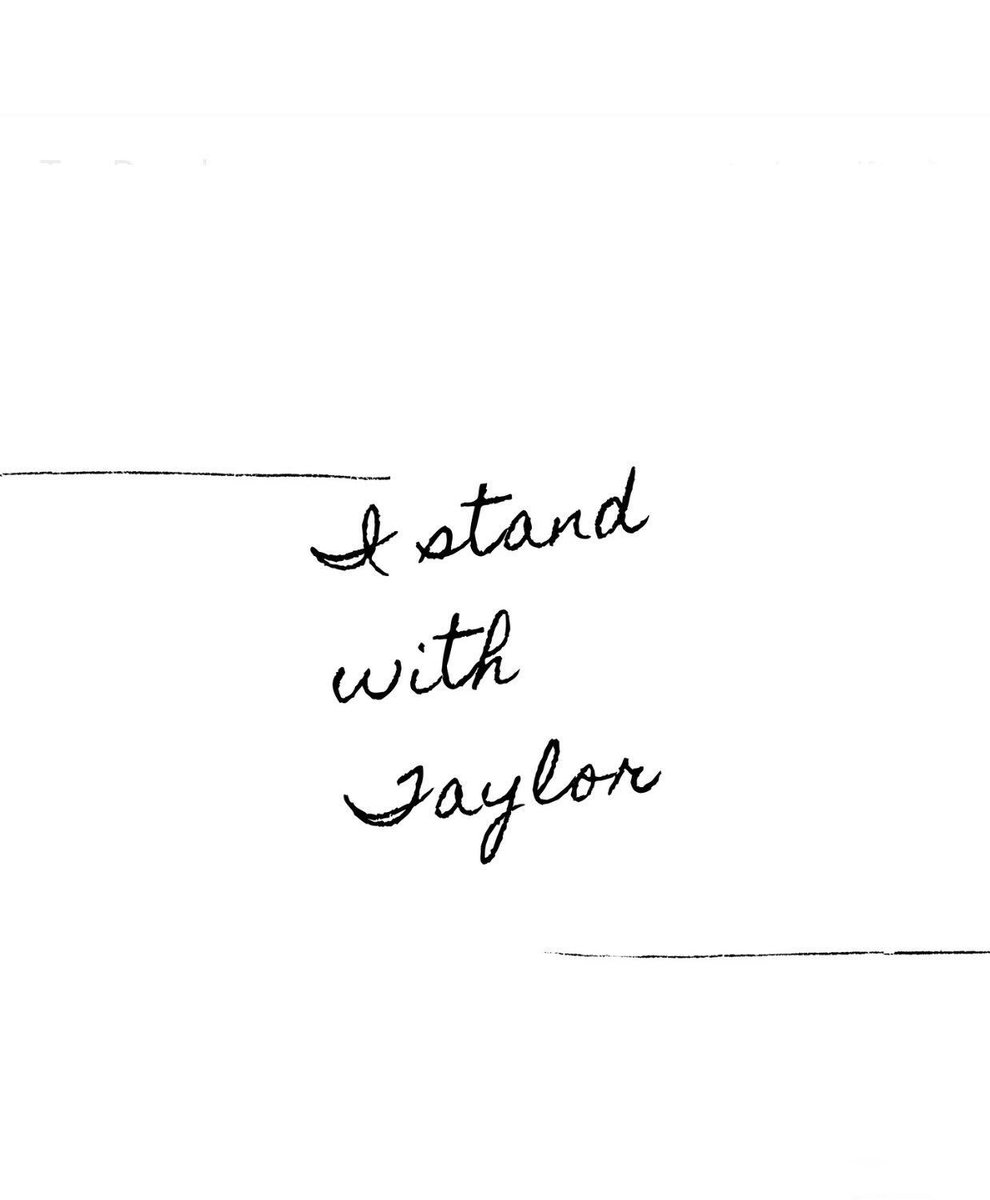 I stand
with
Taylor